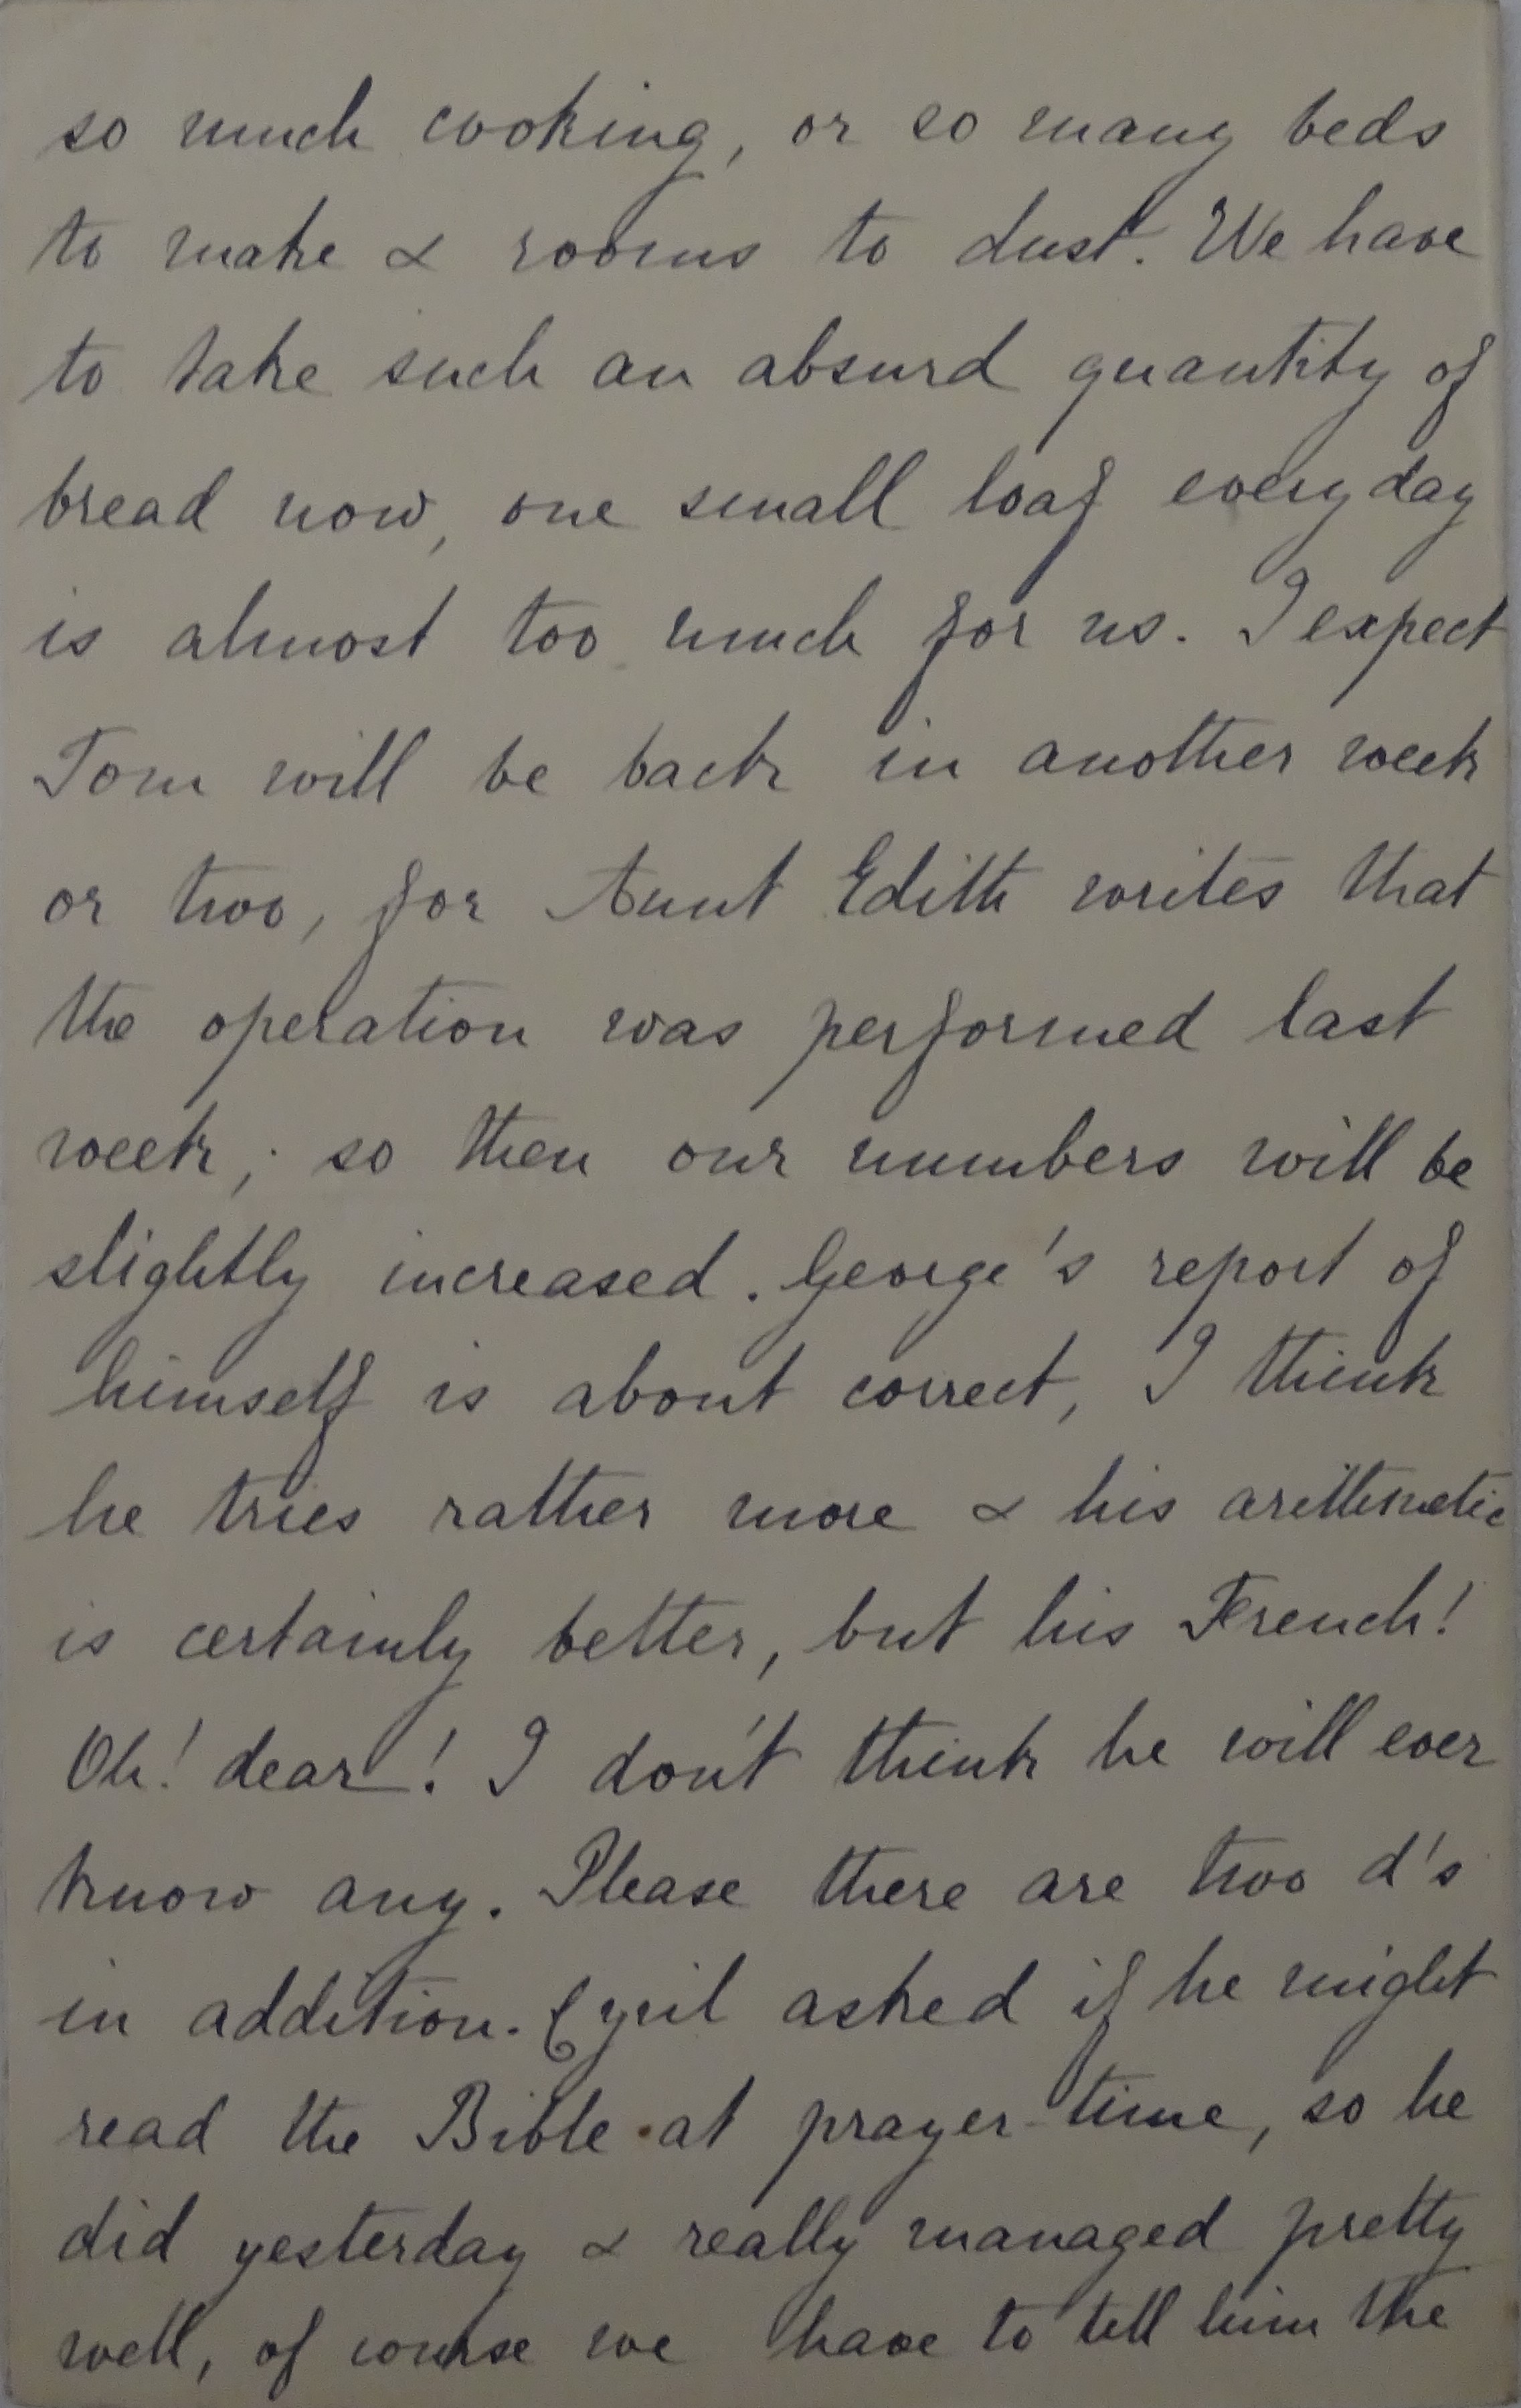 so much cooking, or so many beds
to make & rooms to dust. We have
to take such an absurd quantity of
bread now, one small loaf every day
is almost too much for us. I expect
Tom will be back in another week
or two, for Aunt Edith writes that
the operation was performed last
week; so then our numbers will be
slightly increased. George's report of
himself is about correct, I think
he tries rather more & his arithmetic
is certainly better, but his French!
Oh! dear! I don't think he will ever
know any. Please there are two d's
in addition. Cyril asked if he might
read the Bible at prayer-time, so he
did yesterday & really managed pretty
well, of course we have to tell him the